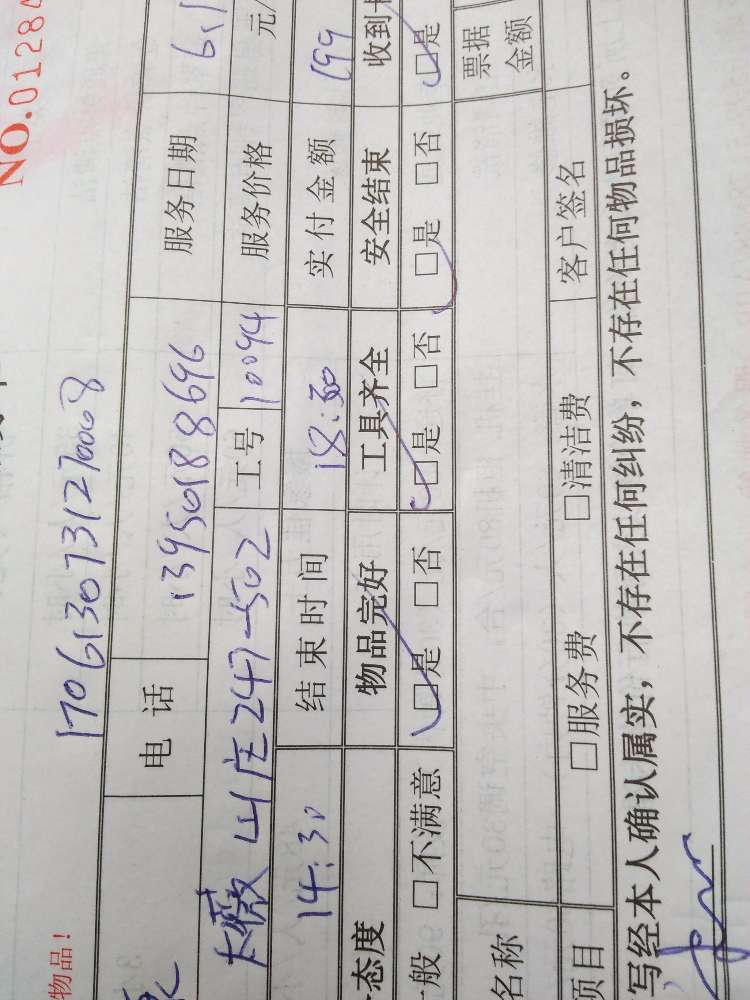 NO.0128
物品！
1706130731270008
电话 13950188696 服务日期 6.1
薇山庄247-502 工号 10094 服务价格 元/
14:30 结束时间 18:30 实付金额 199
态度 物品完好 工具齐全 安全结束 收到
般 □不满意 □是 □否 □是 □否 □是 □否 □是
名称 票据金额
项目 □服务费 □清洁费 客户签名
写经本人确认属实，不存在任何纠纷，不存在任何物品损坏。